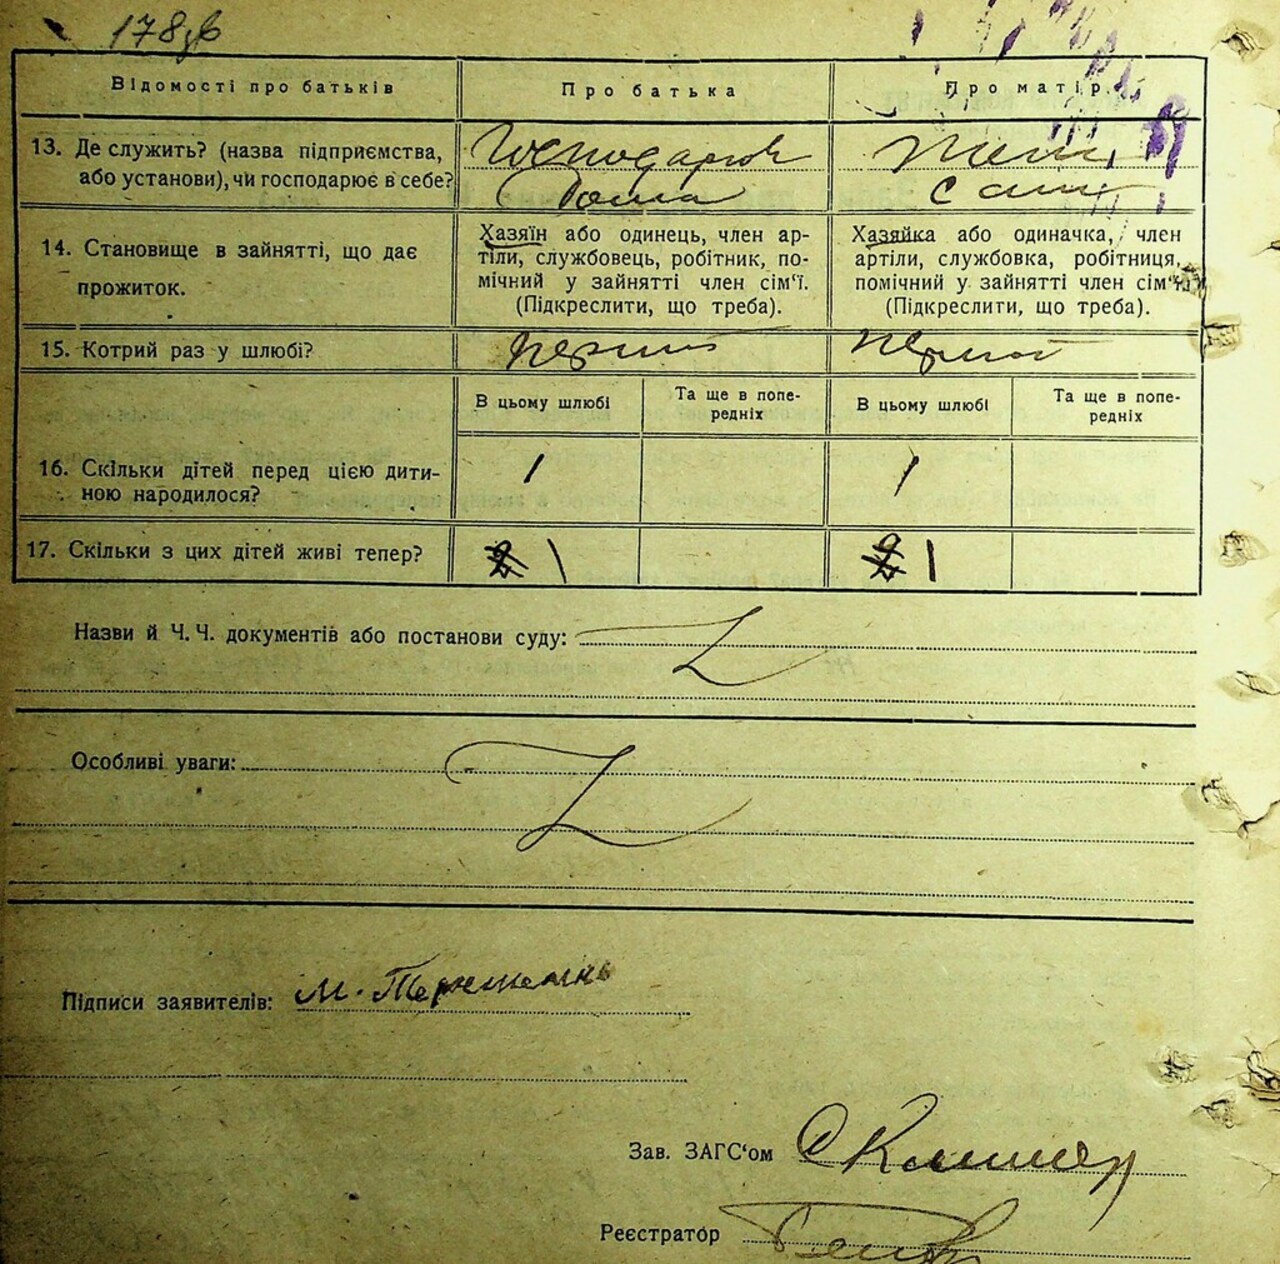 178 зв
Відомості про батьків
Про батька
Про матір
13. Де служить? (назва підприємства,
або установи), чи господарює в себе?
Господарює
Дома
сама
14. Становище в зайнятті, що дає
прожиток.
Хазяїн або одинець, член ар-
тіли, службовець, робітник, по-
мічний у зайнятті член сім‘ї.
(Підкреслити, що треба).
Хазяйка або одиначка, член
артіли, службовка, робітниця,
помічний у зайнятті член сім‘ї
(Підкреслити, що треба).
15. Котрий раз у шлюбі?
перший
першої
В цьому шлюбі
Та ще в попе-
редніх
В цьому шлюбі
Та ще в попе-
редніх
16. Скільки дітей перед цією дити-
ною народилося?
1
1
17. Скільки з цих дітей живі тепер?
1
1
Назви й Ч. Ч. документів або постанови суду:
Особливі уваги:
Підписи заявителів: М.
Зав. ЗАГС‘ом
Реєстратор